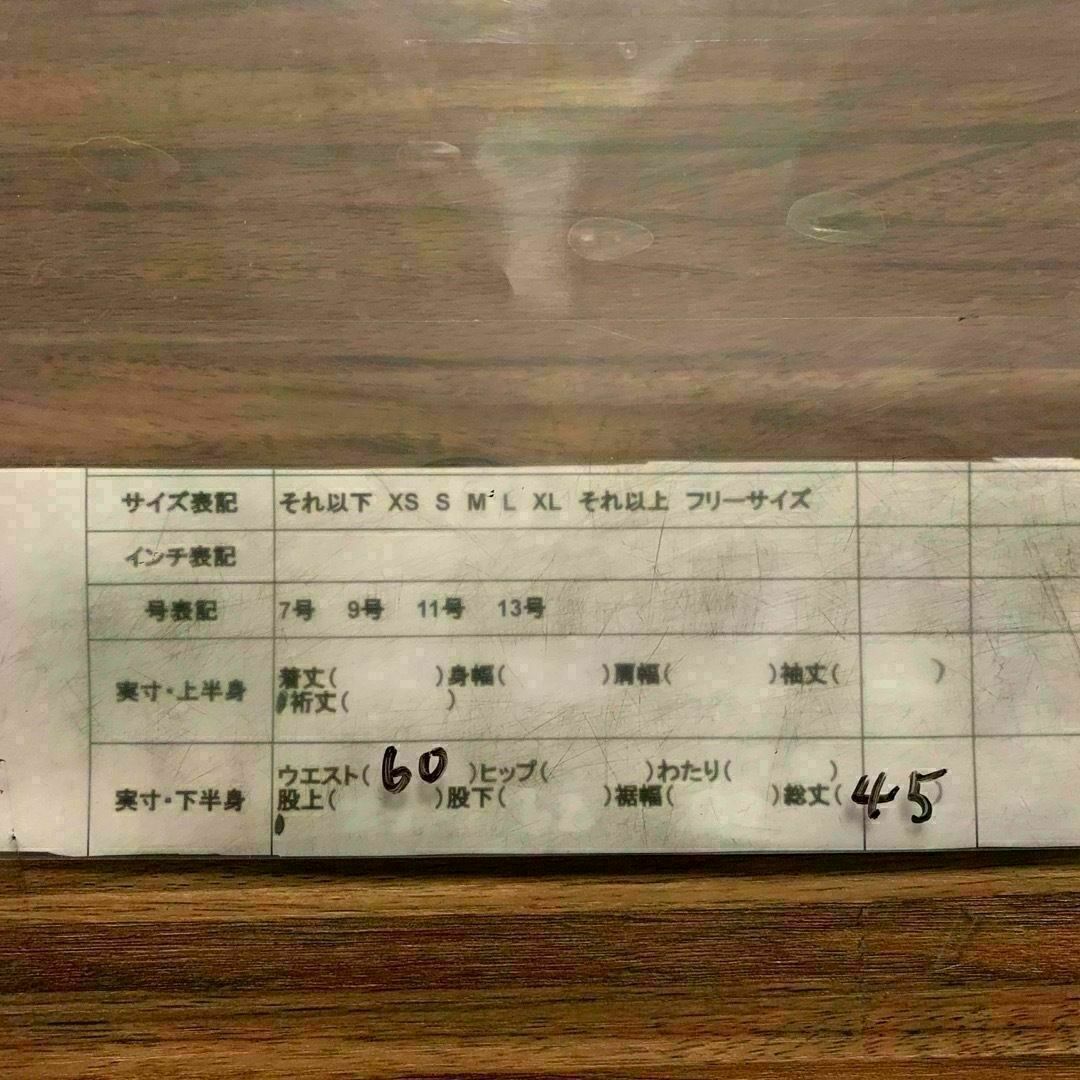 サイズ表記 それ以下 XS S M L XL それ以上 フリーサイズ
インチ表記
号表記 7号 9号 11号 13号
実寸・上半身 着丈( )身幅( )肩幅( )袖丈( )
裄丈( )
実寸・下半身 ウエスト( 60 )ヒップ( )わたり( )
股上( )股下( )裾幅( )総丈( 45 )